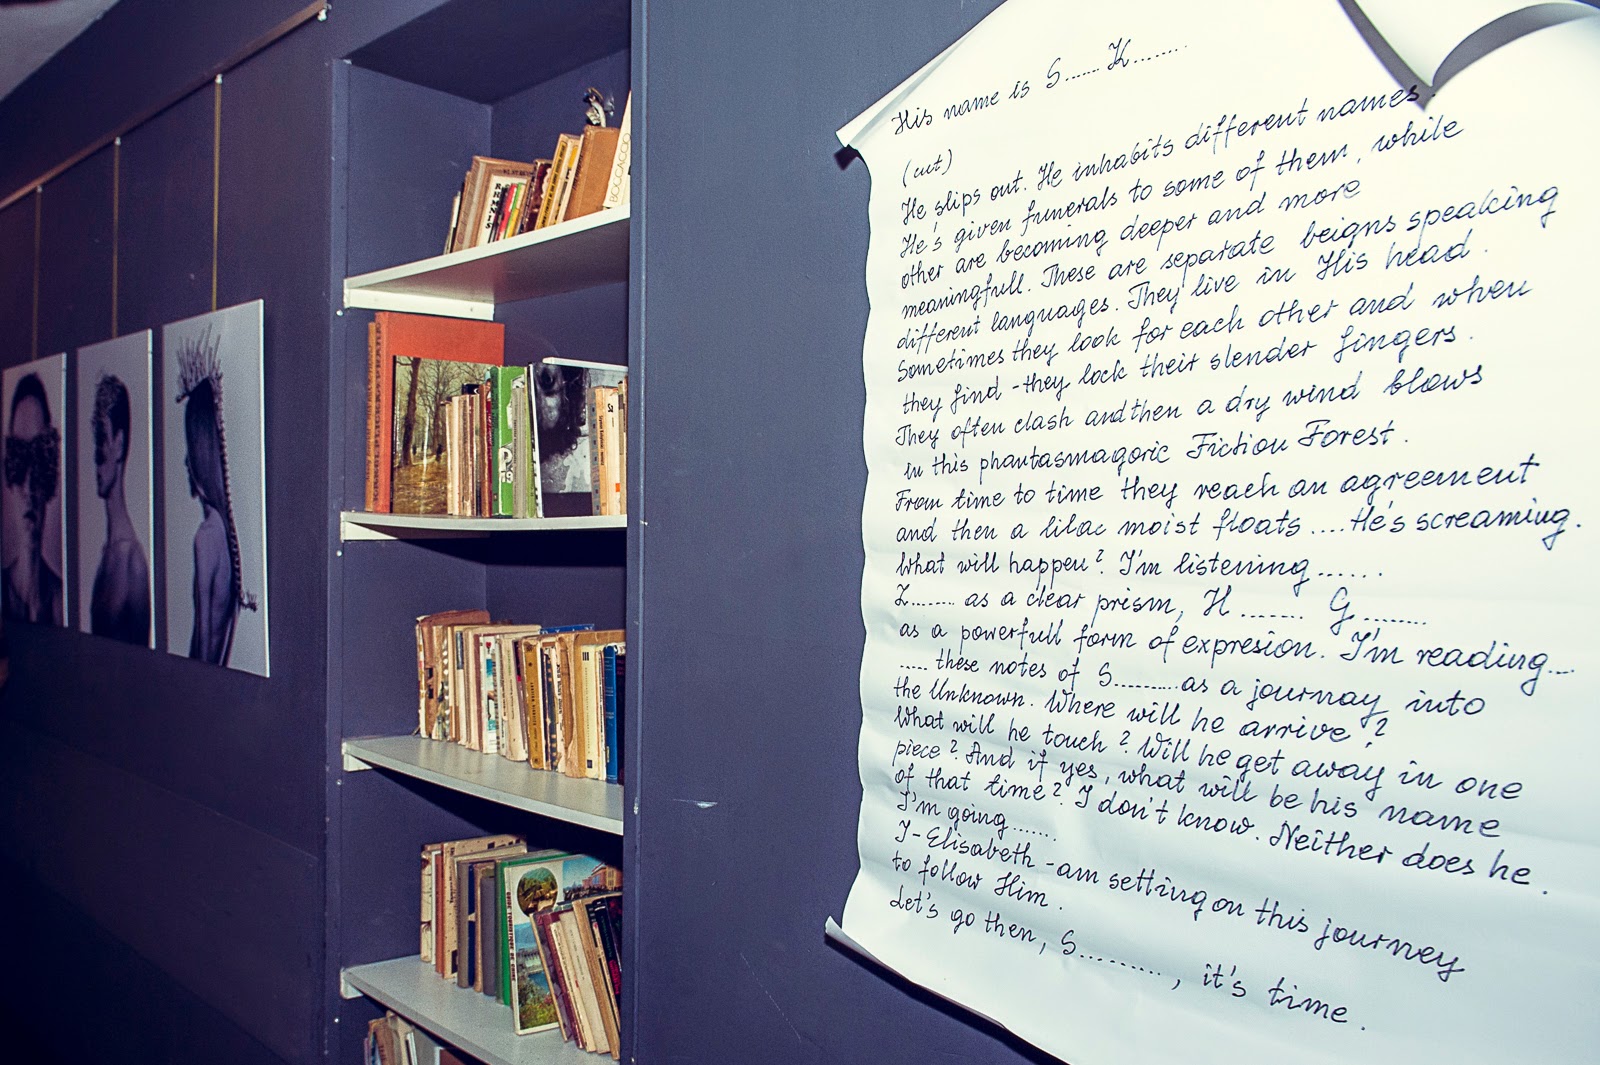 BOCCACCIO
His name is S...... K.......
(cut)
He slips out. He inhabits different names.
He's given funerals to some of them, while
other are becoming deeper and more
meaningfull. These are separate beigns speaking
different languages. They live in His head.
Sometimes they look for each other and when
they find - they lock their slender fingers.
They often clash and then a dry wind blows
in this phantasmagoric Fiction Forest.
From time to time they reach an agreement
and then a lilac moist floats .... He's screaming.
What will happen? I'm listening......
Z........ as a clear prism, H ....... G ........
as a powerfull form of expresion. I'm reading...
..... these notes of S.......... as a journay into
the Unknown. Where will he arrive?
What will he touch? Will he get away in one
piece? And if yes, what will be his name
of that time? I don't know. Neither does he.
I'm going.......
I - Elisabeth - am setting on this journey
to follow Him.
Let's go then, S.........., it's time.